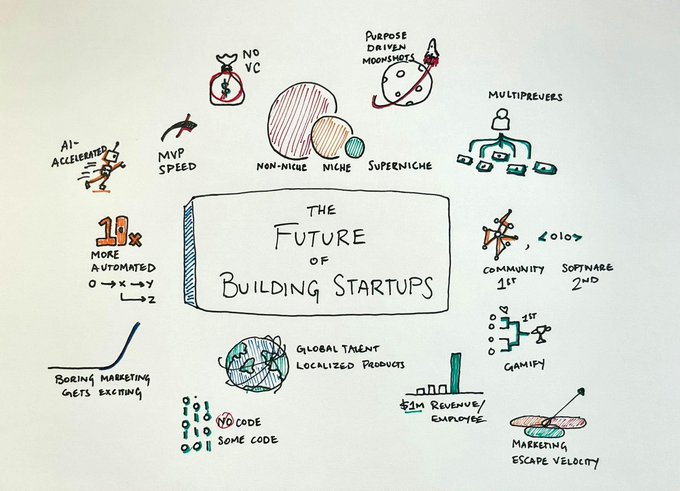 THE
FUTURE
OF
BUILDING STARTUPS
NO
VC
$
PURPOSE
DRIVEN
MOONSHOTS
MULTIPREUERS
AI-
ACCELERATED
MVP
SPEED
NON-NICHE NICHE SUPERNICHE
10x
MORE
AUTOMATED
O → X → Y
→ Z
COMMUNITY
1ST
, <010>
SOFTWARE
2ND
1ST
GAMIFY
BORING MARKETING
GETS EXCITING
GLOBAL TALENT
LOCALIZED PRODUCTS
NO CODE
SOME CODE
$1M REVENUE/
EMPLOYEE
MARKETING
ESCAPE VELOCITY